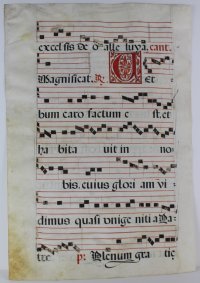 excelsis de o alle luya. cant.
Magnificat. R. Et
bum caro factum e st. et
ha bita uit in no
bis. cuius glori am vi
dimus quasi vnige niti a Pa
tre. p. Plenum gra tie